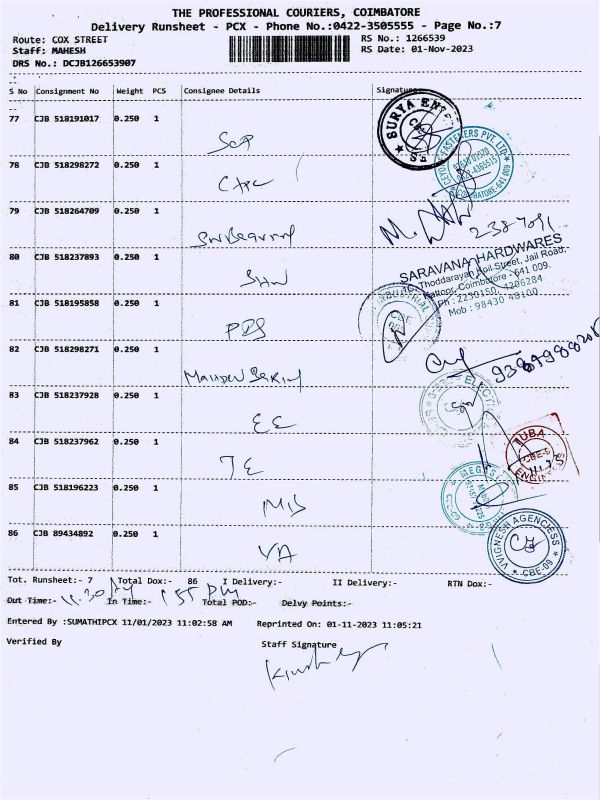 THE PROFESSIONAL COURIERS, COIMBATORE
Delivery Runsheet - PCX - Phone No.:0422-3505555 - Page No.:7
Route: COX STREET RS No.: 1266539
Staff: MAHESH RS Date: 01-Nov-2023
DRS No.: DCJB126653907
S No Consignment No Weight PCS Consignee Details Signature
77 CJB 518191017 0.250 1
SURYA ENT
78 CJB 518298272 0.250 1
FASTENERS PVT. LTD
79 CJB 518264709 0.250 1
80 CJB 518237893 0.250 1
SHW
SARAVANA HARDWARES
Thoddarayan Koil Street, Jail Road,
Kattoor, Coimbatore - 641 009.
Ph : 2230150, 4206284
Mob : 98430 48100
81 CJB 518195858 0.250 1
PDS
INDUSTRIAL
CBE
82 CJB 518298271 0.250 1
83 CJB 518237928 0.250 1
EE
ELECTR
84 CJB 518237962 0.250 1
JE
TUBA
85 CJB 518196223 0.250 1
MIS
86 CJB 89434892 0.250 1
VA
VVIGNESH AGENCIESS
CBE-09
Tot. Runsheet:- 7 Total Dox:- 86 I Delivery:- II Delivery:- RTN Dox:-
Out Time:- 11.30 AM In Time:- 1 55 PM Total POD:- Delvy Points:-
Entered By :SUMATHIPCX 11/01/2023 11:02:58 AM Reprinted On: 01-11-2023 11:05:21
Verified By Staff Signature